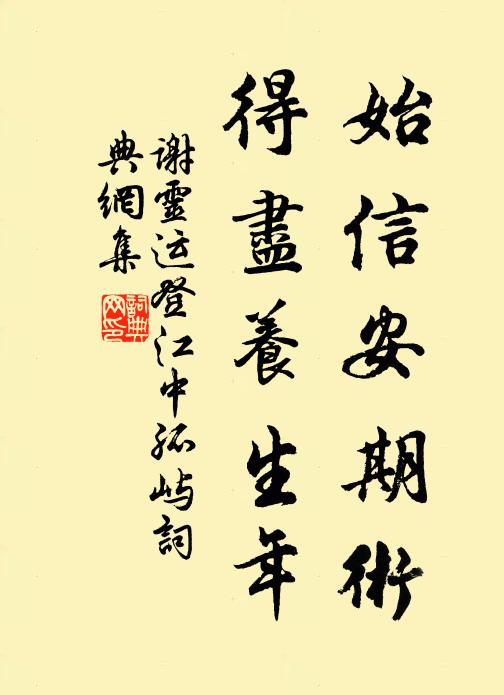 始信安期術
得盡養生年
謝靈运登江中孤屿詞
典網集
詞典網印